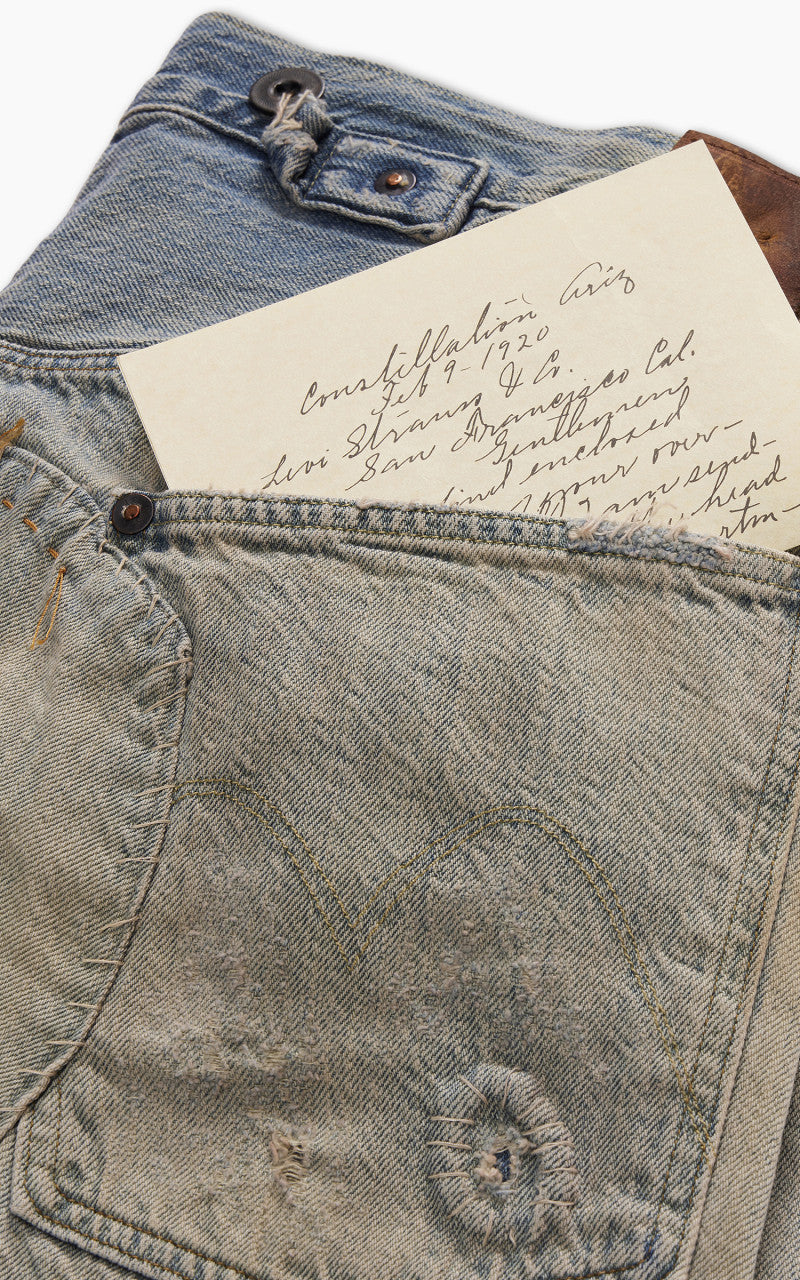 Constellation Ariz
Feb 9-1920
Levi Strauss & Co.
San Francisco Cal.
Gentlemen,
find enclosed
your over-
I am send-
head
rtm-